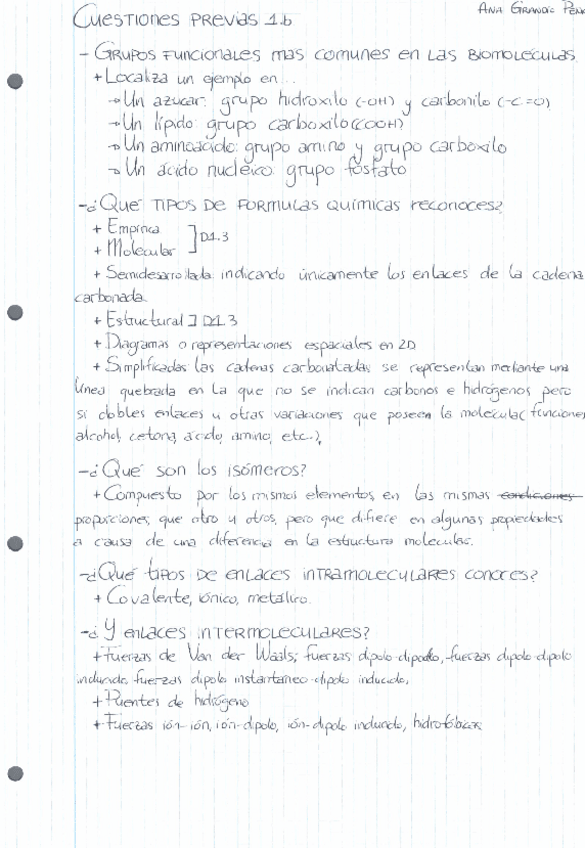 Cuestiones previas 1.b
Ana Grande
- Grupos funcionales mas comunes en las Biomoleculas.
+ Localiza un ejemplo en...
→ Un azucar: grupo hidroxilo (-OH) y carbonilo (-C=O)
→ Un lípido: grupo carboxilo (COOH)
→ Un aminoacido: grupo amino y grupo carboxilo
→ Un ácido nucleico: grupo fosfato
- ¿Qué tipos de formulas químicas reconoces?
+ Empírica
+ Molecular ] D1.3
+ Semidesarrollada: indicando únicamente los enlaces de la cadena
carbonada.
+ Estructural ] D1.3
+ Diagramas o representaciones espaciales en 2D
+ Simplificadas: las cadenas carbonatadas se representan mediante una
línea quebrada en la que no se indican carbonos e hidrógenos pero
si dobles enlaces u otras variaciones que poseen la molécula (funciones
alcohol, cetona, ácido, amino, etc...),
- ¿Qué son los isómeros?
+ Compuesto por los mismos elementos, en las mismas condiciones
proporciones, que otro u otros, pero que difiere en algunas propiedades
a causa de una diferencia en la estructura molecular.
- ¿Qué tipos de enlaces intramoleculares conoces?
+ Covalente, iónico, metálico.
- ¿Y enlaces intermoleculares?
+ Fuerzas de Van der Waals; fuerzas dipolo-dipolo, fuerzas dipolo-dipolo
inducido, fuerzas dipolo instantaneo-dipolo inducido,
+ Puentes de hidrógeno
+ Fuerzas ión-ión, ión-dipolo, ión-dipolo inducido, hidrofóbicas